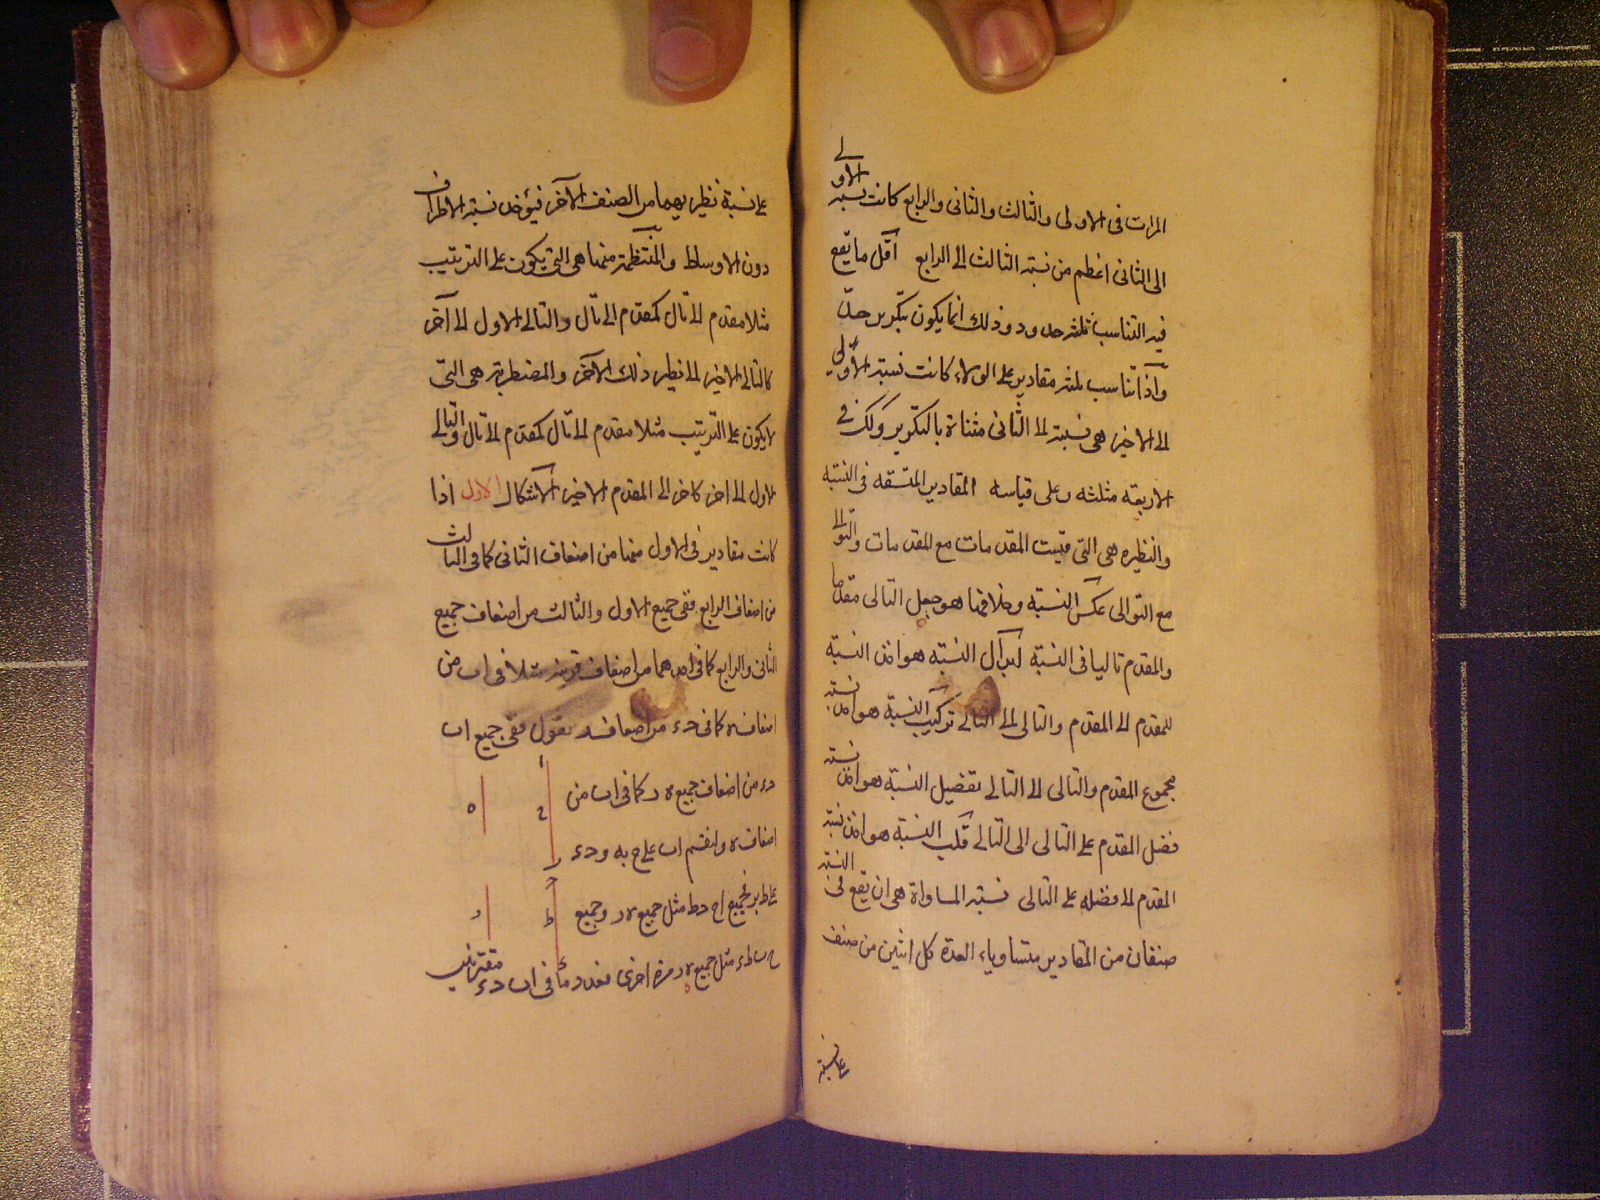 المرات فى الاولى والثالث والثانى والرابع كانت نسبة الاولى
الى الثانى اعظم من نسبة الثالث الى الرابع اقل ما تقع
فيه التناسب ثلثة حدود وذلك انما يكون بتكرير حد
واذا تناسب ثلثة مقادير على الولاء كانت نسبة الاول
الى الاخير هى نسبته الى الثانى مثناة بالتكرير وكك فى
الاربعه مثلثه وعلى قياسه المقادير المتسقه فى النسبه
والنظيره هى التى قيست المقدمات مع المقدمات والتوالى
مع التوالى عكس النسبه وخلافها هو جعل التالى مقدما
والمقدم تاليا فى النسبة ابدال النسبه هو اخذ النسبة
للمقدم الى المقدم والتالى الى التالى تركيب النسبة هو اخذ نسبة
مجموع المقدم والتالى الى التالى تفضيل النسبة هو اخذ نسبة
فضل المقدم على التالى الى التالى قلب النسبة هو اخذ نسبة
المقدم الى فضله على التالى نسبة المساواة هى ان تقع فى النسبة
صنفان من المقادير متساويا العدة كل اثنين من صنف
على نسبة
على نسبة نظيريهما من الصنف الآخر فيؤخذ نسبة الاطراف
دون الاوساط والمنتظمة منها هى التى يكون على الترتيب
مثلا مقدم الى تال كمقدم الى تال والتالى الاول الى آخر
كالتالى الاخير الى نظير ذلك الآخر والمضطربة هى التى
لا يكون على الترتيب مثلا مقدم الى تال كمقدم الى تال والتالى
الاول الى اخر كاخر الى المقدم الاخير الاشكال الاول اذا
كانت مقادير فى الاول منها من اضعاف الثانى كما فى الثالث
من اضعاف الرابع ففى جميع الاول والثالث من اضعاف جميع
الثانى والرابع كما فى احدهما من اضعاف قرينه مثلا فى اب من
اضعاف ه كما فى حء من اضعاف ر نقول ففى جميع اب
حء من اضعاف جميع ه ر كما فى اب من
اضعاف ه ولنقسم اب على ح به وحء
على ط بر فجميع اح حط مثل جميع ه ر وجميع
ح ب طء مثل جميع ه ر مرة اخرى فعدد ما فى اب حء مقترنين